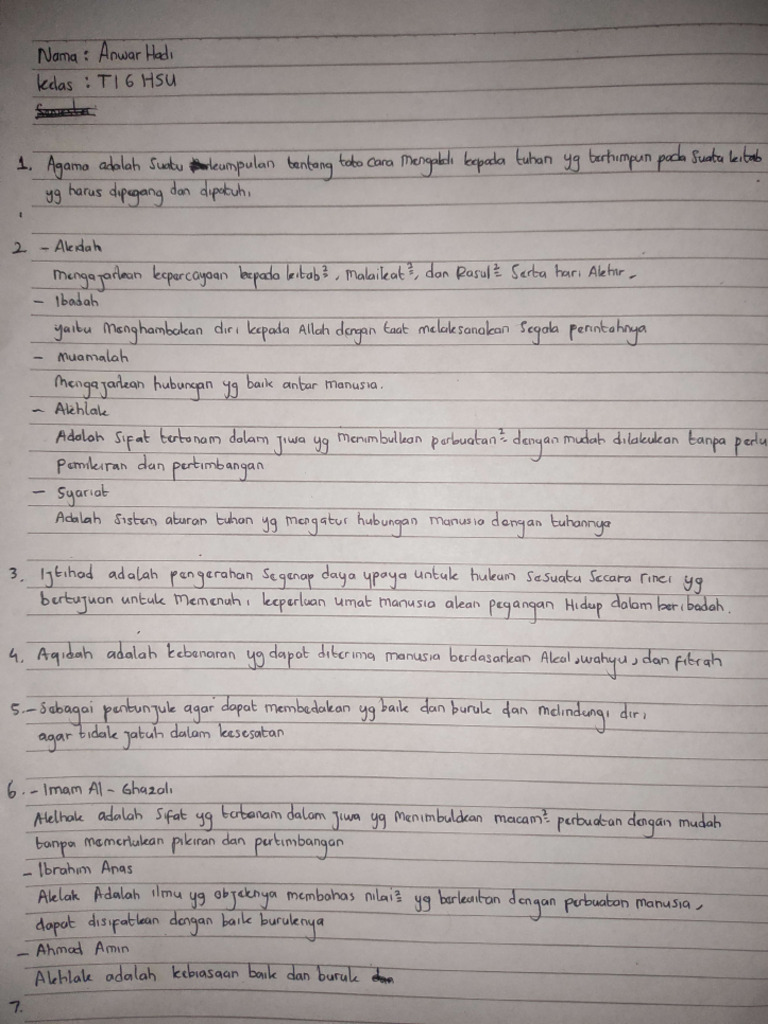 Nama : Anwar Hadi
kelas : TI 6 HSU
1. Agama adalah suatu kumpulan tentang tata cara mengabdi kepada tuhan yg terhimpun pada suatu kitab
yg harus dipegang dan dipatuhi
2 - Akidah
Mengajarkan kepercayaan kepada kitab², malaikat², dan Rasul² serta hari Akhir.
- Ibadah
yaitu Menghambakan diri kepada Allah dengan taat melaksanakan segala perintahnya
- Muamalah
Mengajarkan hubungan yg baik antar manusia.
- Akhlak
Adalah sifat tertanam dalam jiwa yg menimbulkan perbuatan² dengan mudah dilakukan tanpa perlu
Pemikiran dan pertimbangan
- Syariat
Adalah sistem aturan tuhan yg mengatur hubungan manusia dengan tuhannya
3. Ijtihad adalah pengerahan segenap daya upaya untuk hukum sesuatu secara rinci yg
bertujuan untuk memenuhi keperluan umat manusia akan pegangan Hidup dalam beribadah.
4. Aqidah adalah kebenaran yg dapat diterima manusia berdasarkan Akal, wahyu, dan fitrah
5. - Sebagai pentunjuk agar dapat membedakan yg baik dan buruk dan melindungi diri
agar tidak jatuh dalam kesesatan
6. - Imam Al - Ghazali
Akhak adalah sifat yg tertanam dalam jiwa yg menimbulkan macam² perbuatan dengan mudah
tanpa memerlukan pikiran dan pertimbangan
- Ibrahim Anas
Aklak Adalah ilmu yg objeknya membahas nilai² yg berkaitan dengan perbuatan manusia,
dapat disipatkan dengan baik buruknya
- Ahmad Amin
Akhlak adalah kebiasaan baik dan buruk
7.